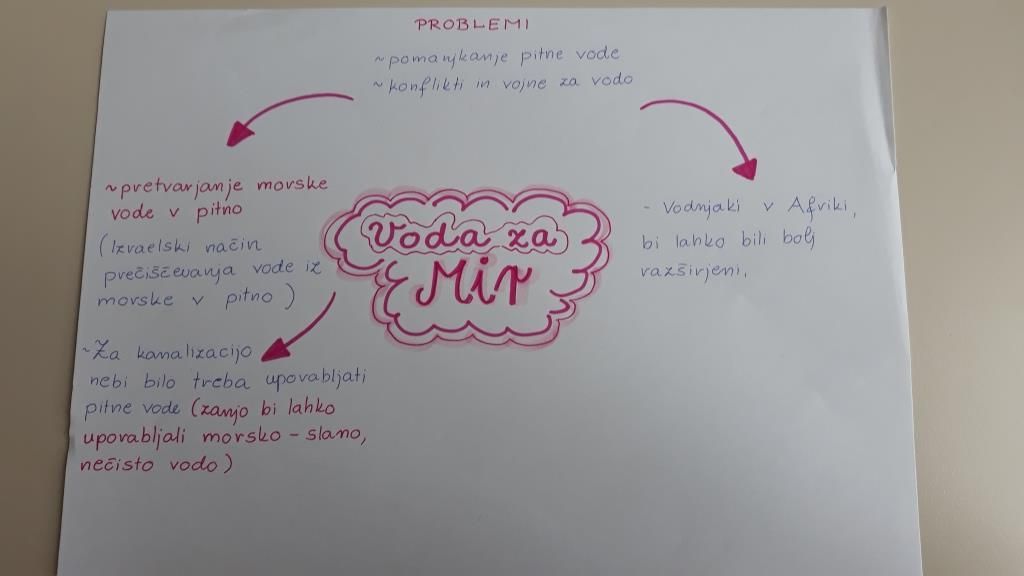 PROBLEMI
~pomanjkanje pitne vode
~konflikti in vojne za vodo
~pretvarjanje morske
vode v pitno
(Izraelski način
prečiščevanja vode iz
morske v pitno)
~Za kanalizacijo
nebi bilo treba upovabljati
pitne vode (zanjo bi lahko
upovabljali morsko-slano,
nečisto vodo)
Voda za
Mir
- Vodnjaki v Afriki,
bi lahko bili bolj
razširjeni.